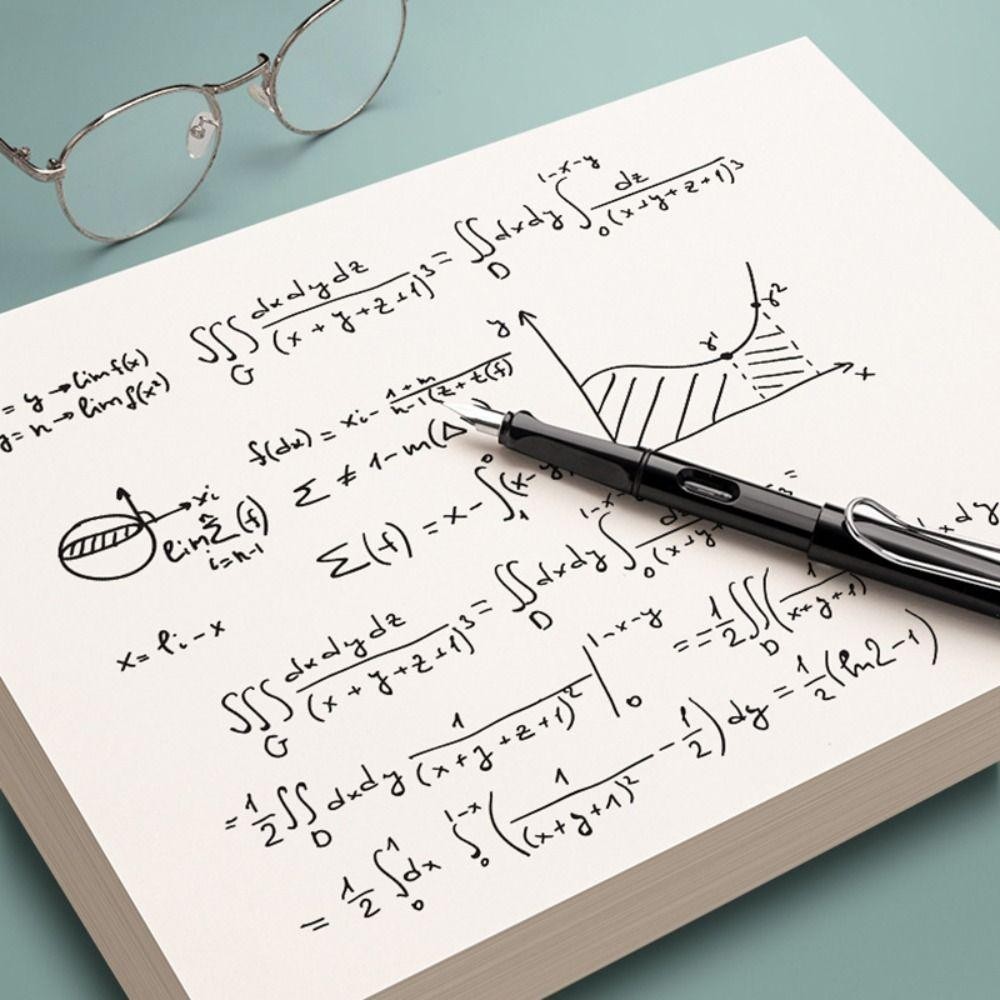 ∭_G dx dy dz / (x + y + z + 1)³ = ∬_D dx dy ∫₀^{1-x-y} dz / (x + y + z + 1)³
= y → lim f(x)
y = n → lim f(x²)
y r¹ r² x
f(dx) = xᵢ - (1 + n) / (n-1(z + t(f)
Σ ≠ 1 - m(Δ
xᵢ
lim Σ (f)
i=n-1
Σ(f) = x - ∫₁⁰ (x - y
x = lᵢ - x
∭_G dx dy dz / (x + y + z + 1)³ = ∬_D dx dy ∫₀^{1-x-y} dz / (x + y + =
= 1/2 ∬_D dx dy 1 / (x + y + z + 1)² |₀^{1-x-y} = = 1/2 ∬_D ( 1 / (x + y + 1)
= 1/2 ∫₀¹ dx ∫₀^{1-x} ( 1 / (x + y + 1)² - 1/2 ) dy = 1/2 (ln2 - 1)